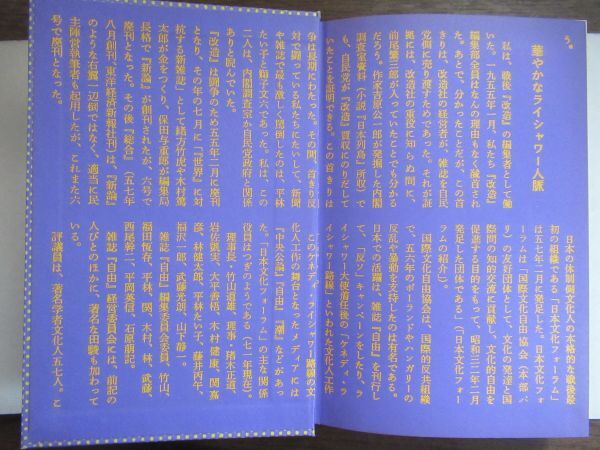 う。
華やかなライシャワー人脈
私は、戦後『改造』の編集者として働
いた。一九五五年一月、私たち『改造』
編集部全員はなんの理由もなく馘首され
た。あとで、分かったことだが、この首
きりは、改造社の経営者が、雑誌を自民
党側に売り渡すためであった。それが証
拠には、改造社の重役に知らぬ間に、
前尾繁三郎が入っていたことでも分かる
だろう。作家吉原公一郎が発掘した内閣
調査室資料(小説『日本列島』所収)で
も、自民党が『改造』買収にのりだして
いたことを証明できる。この首きりは
争は長期にわたった。その間、首きり反
対で闘っている私たちにたいして、新聞
や雑誌で最も激しく罵倒したのは、平林
たい子と獅子文六であった。私は、この
二人は、内閣調査室か自民党政府と関係
ありと睨んでいた。
『改造』は闘争のため五五年二月に廃刊
となり、その年の七月に「『世界』に対
抗する新雑誌」として緒方竹虎や木村篤
太郎が金をつくり、保田与重郎が編集局
長格で『新論』が創刊されたが、六号で
廃刊となった。その後『総合』(五七年
八月創刊、東洋経済新報社刊)は、『新論』
のような右翼一辺倒ではなく、適当に民
主陣営執筆者も起用したが、これまた六
号で廃刊となった。
日本の体制側文化人の本格的な戦後最
初の組織である「日本文化フォーラム」
は五七年二月に発足した。日本文化フォ
ーラムは「国際文化自由協会(本部パ
リ)の友好団体として、文化の発達と国
際間の知的交流に貢献し、文化的自由を
促進する目的をもって、昭和三二年二月
発足した団体である」(『日本文化フォー
ラムの紹介』)。
国際文化自由協会は、国際的反共組織
で、五六年のポーランドやハンガリーの
反乱や暴動を支持したのは有名である。
日本での活躍は、雑誌『自由』を刊行し
て、「反ソ」キャンペーンをしたり、ラ
イシャワー大使着任後の「ケネディ・ラ
イシャワー路線」といわれた文化人工作
このケネディ・ライシャワー路線の文
化人工作の舞台となったメディアには
『中央公論』『自由』『潮』などがあっ
た。「日本文化フォーラム」の主な関係
役員はつぎのようである(七一年現在)。
理事長・竹山道雄、理事・猪木正道、
岩佐凱実、大平善梧、木村健康、関嘉
彦、林健太郎、平林たい子、藤井丙午、
福沢一郎、武藤光朗、山下静一。
雑誌『自由』編集委員会委員、竹山、
福田恆存、平林、関、木村、林、武藤、
西尾幹二、平岡英信、石原萠記。
雑誌『自由』経営委員会には、前記の
人びとのほかに、著名な田駿も加わって
いる。
評議員は、著名学者文化人五七人。こ